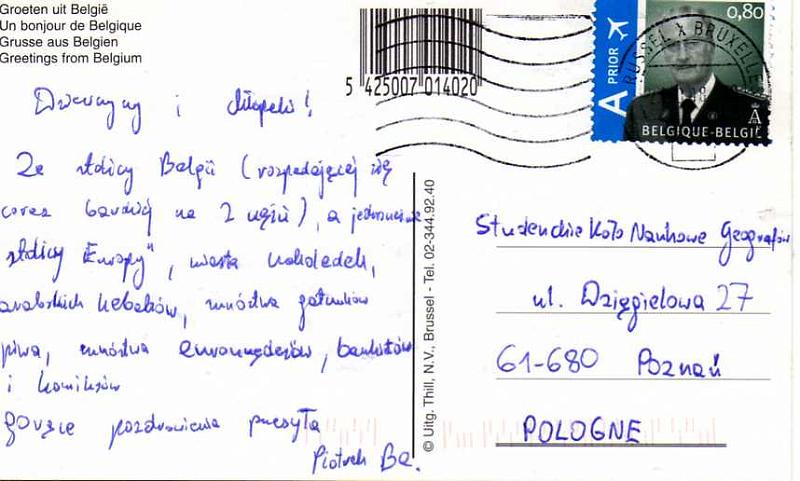 Groeten uit België
Un bonjour de Belgique
Grusse aus Belgien
Greetings from Belgium
5 425007 014020
A PRIOR
0,80
BRUSSEL X BRUXELLES
BELGIQUE-BELGIË
Dziewczyny i chłopaki!
Ze stolicy Belgii (rozpadającej się
coraz bardziej na 2 części), a jednocześnie
"stolicy Europy", miasta czekoladek,
arabskich kebabów, mnóstwa gatunków
piwa, mnóstwa eurourzędasów, bankietów
i komiksów
gorące pozdrowienia przesyła
Piotrek Ba.
© Uitg. Thill, N.V., Brussel - Tel. 02-344.92.40
Studenckie Koło Naukowe Geografów
ul. Dzięgielowa 27
61-680 Poznań
POLOGNE